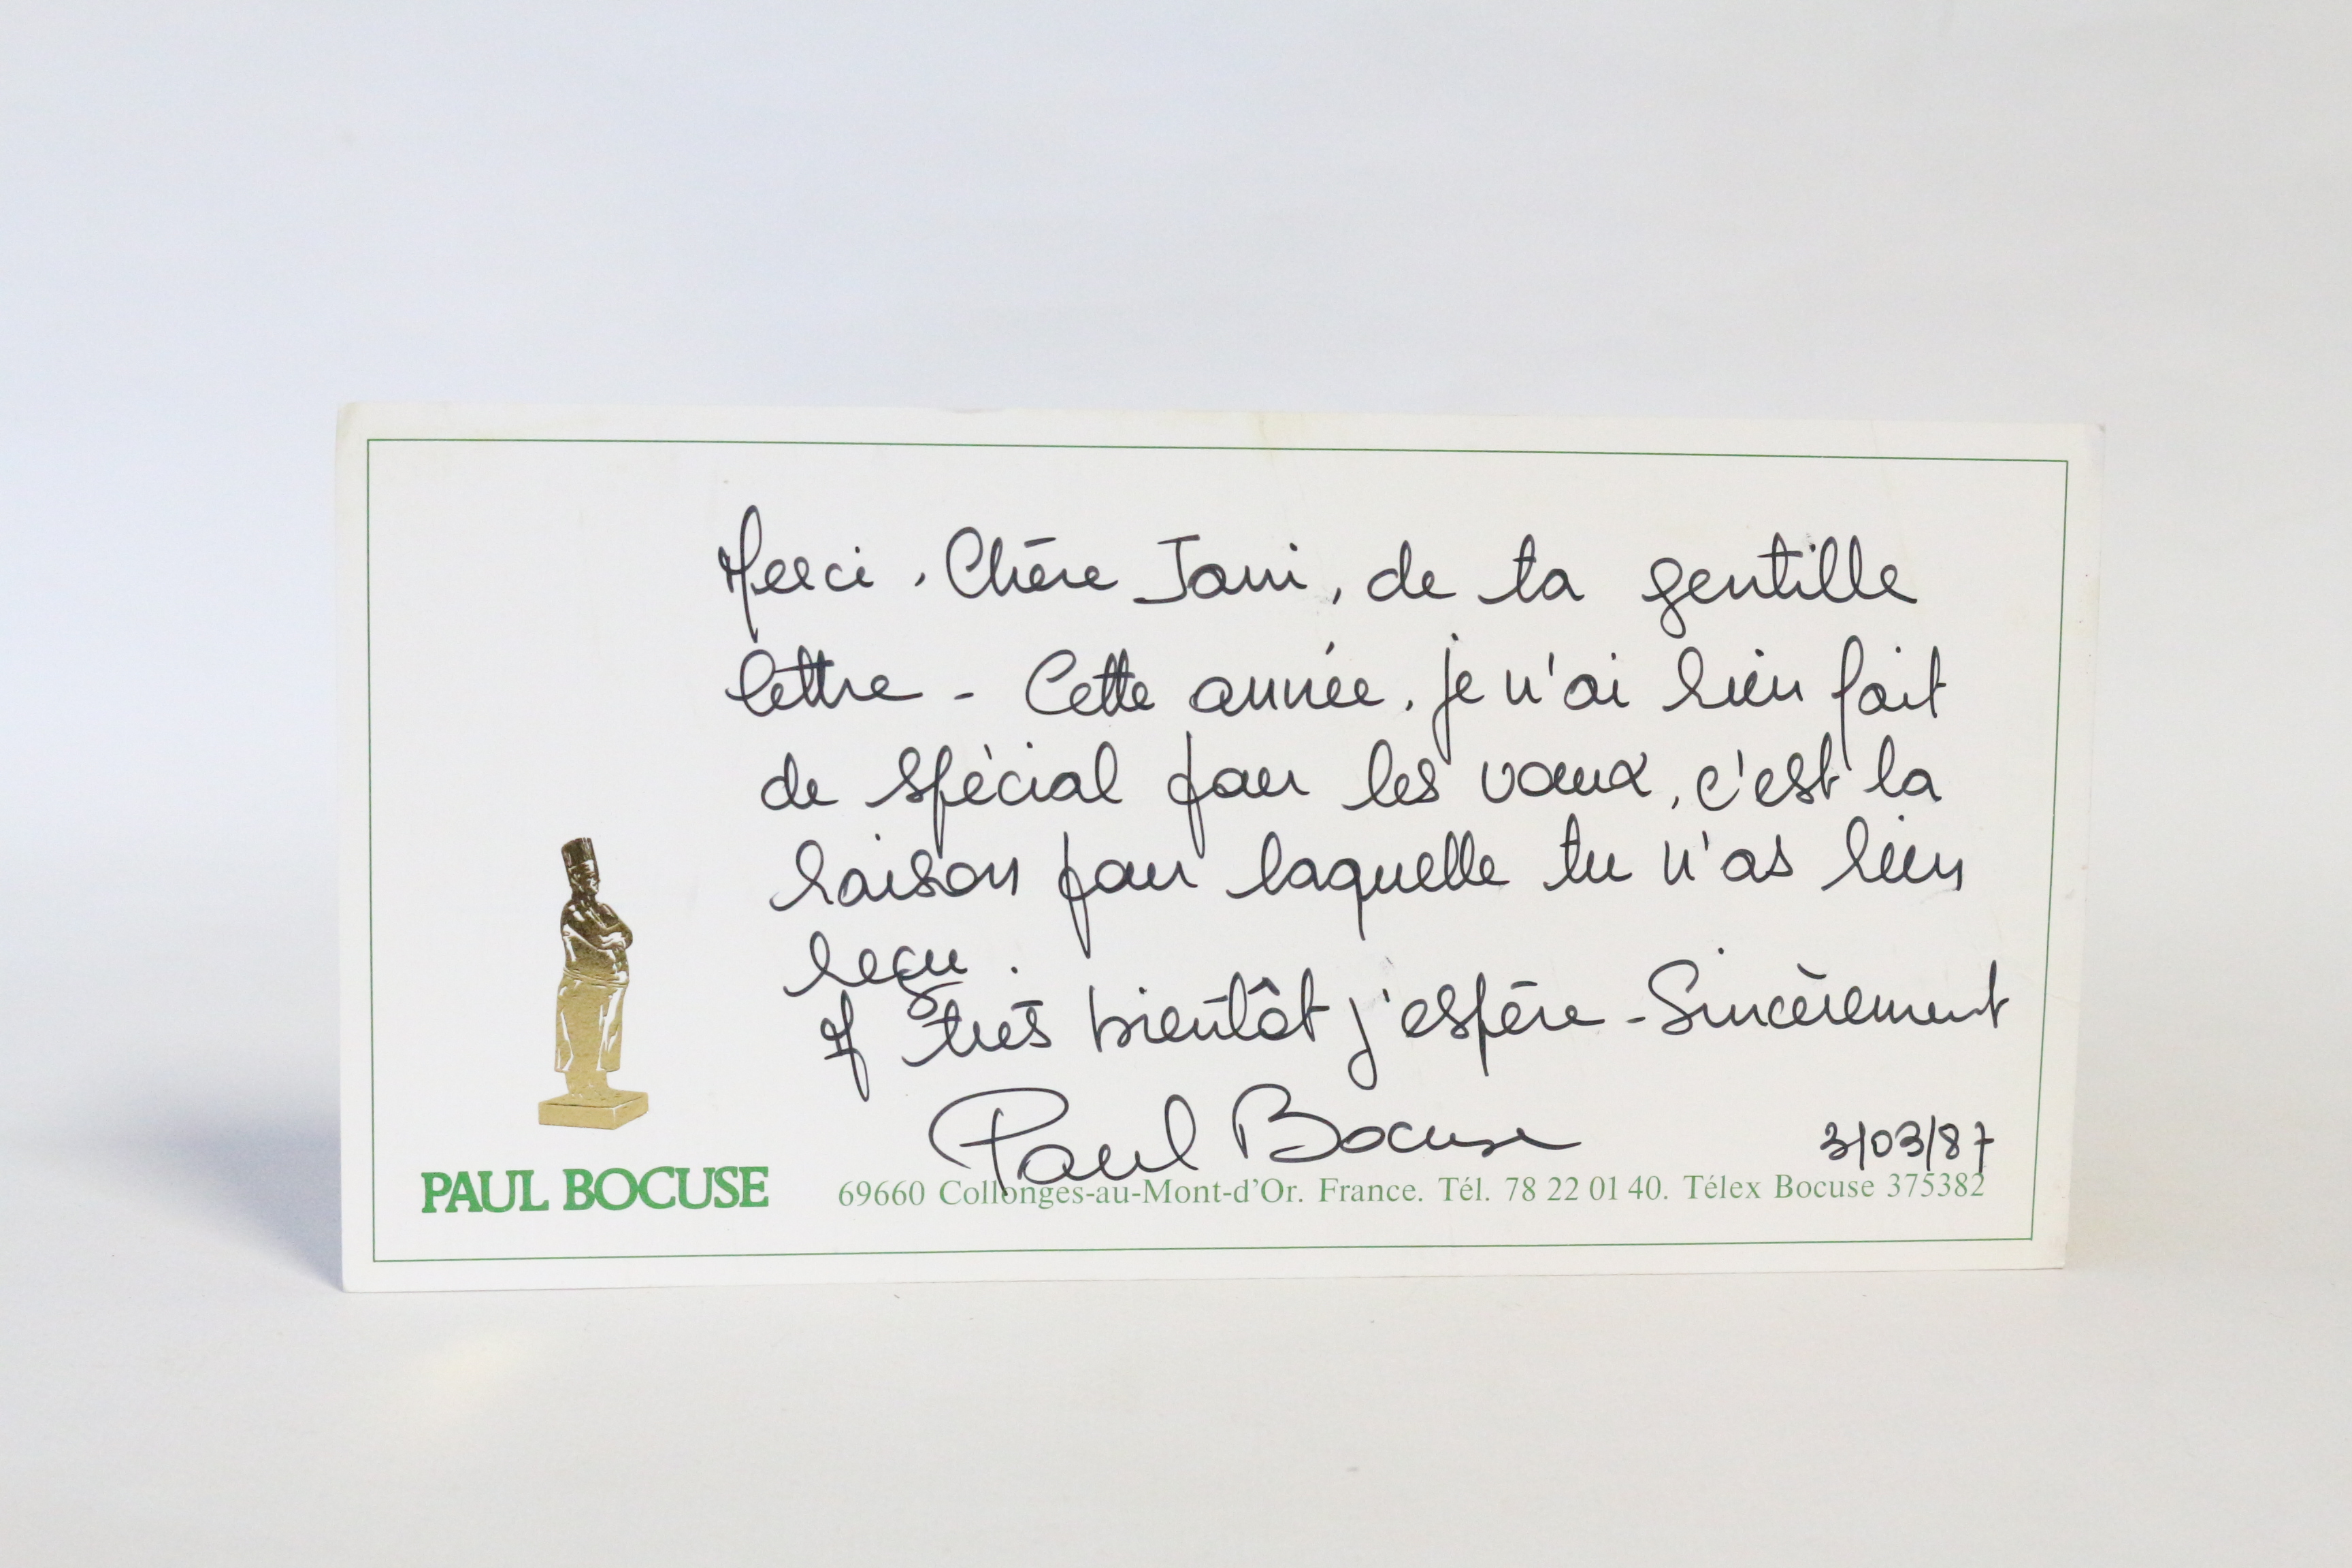 Merci, Chère Jani, de ta gentille
lettre - Cette année, je n'ai rien fait
de spécial pour les vœux, c'est la
raison pour laquelle tu n'as rien
reçu.
A très bientôt j'espère - Sincèrement
Paul Bocuse
3/03/87
PAUL BOCUSE
69660 Collonges-au-Mont-d'Or. France. Tél. 78 22 01 40. Télex Bocuse 375382